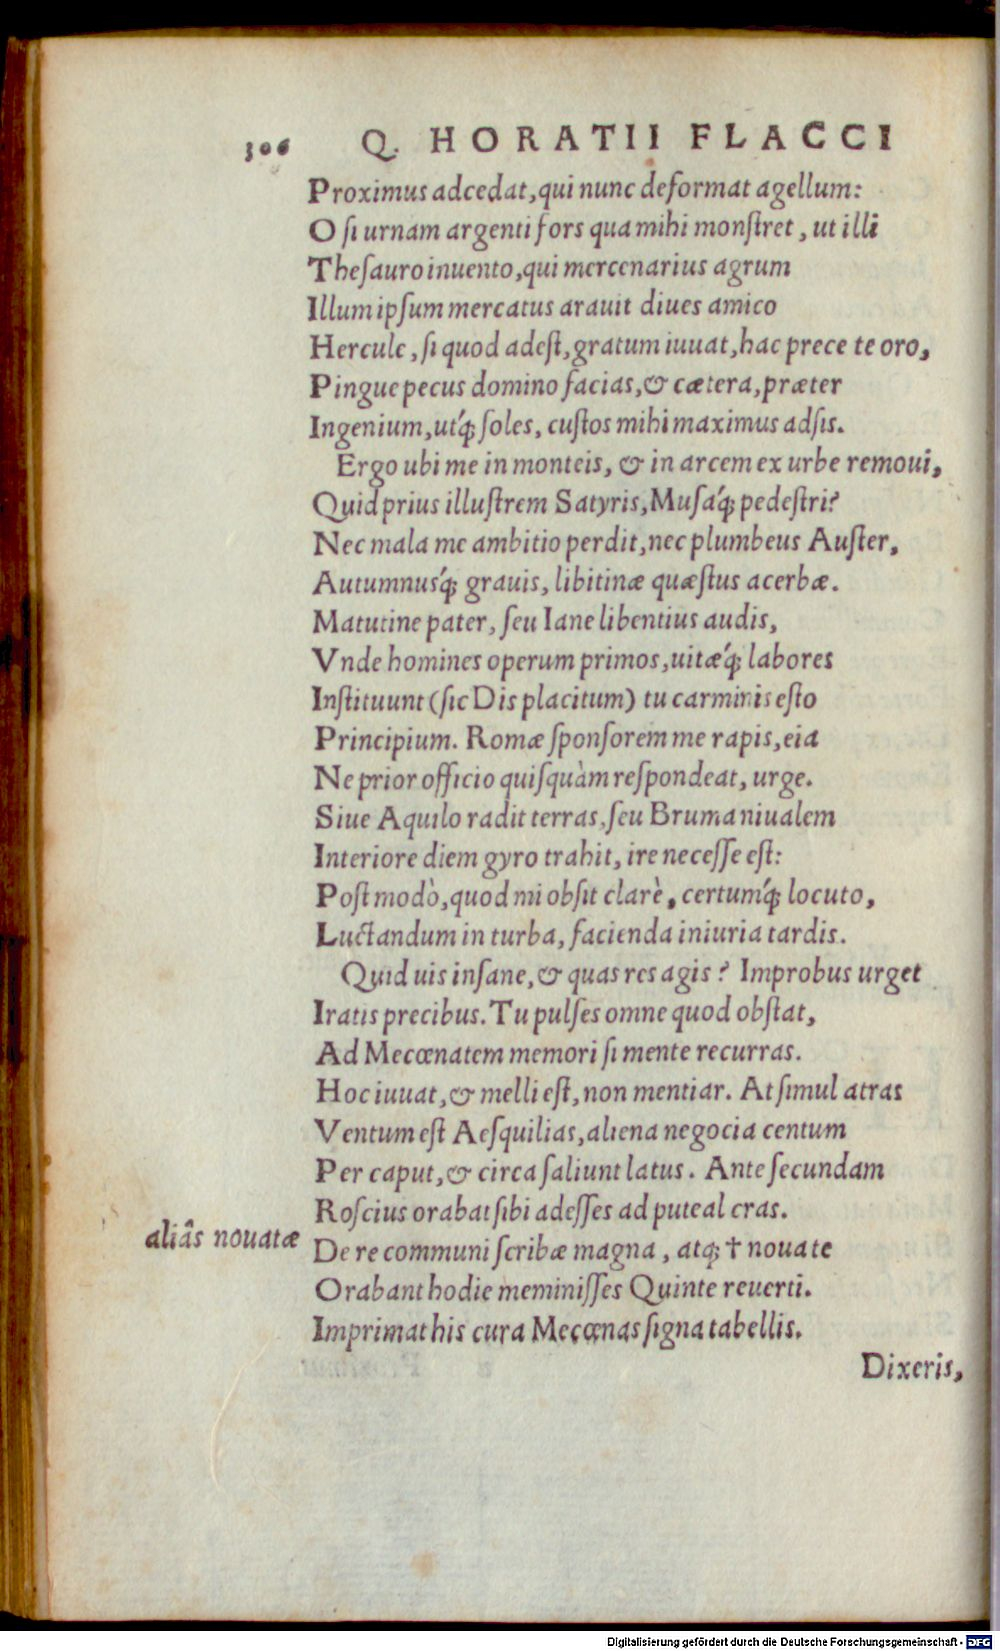 306 Q. HORATII FLACCI
Proximus adcedat, qui nunc deformat agellum:
O ſi urnam argenti fors qua mihi monſtret, ut illi
Theſauro inuento, qui mercenarius agrum
Illum ipſum mercatus arauit diues amico
Hercule, ſi quod adeſt, gratum iuuat, hac prece te oro,
Pingue pecus domino facias, & cætera, præter
Ingenium, utq́; ſoles, cuſtos mihi maximus adſis.
Ergo ubi me in monteis, & in arcem ex urbe remoui,
Quid prius illuſtrem Satyris, Muſaq́; pedeſtri?
Nec mala me ambitio perdit, nec plumbeus Auſter,
Autumnusq́; grauis, libitinæ quæſtus acerbæ.
Matutine pater, ſeu Iane libentius audis,
Vnde homines operum primos, uitæq́; labores
Inſtituunt (ſic Dis placitum) tu carminis eſto
Principium. Romæ ſponſorem me rapis, eia
Ne prior officio quiſquàm reſpondeat, urge.
Siue Aquilo radit terras, ſeu Bruma niualem
Interiore diem gyro trahit, ire neceſſe eſt:
Poſt modò, quod mi obſit clarè, certumq́; locuto,
Luctandum in turba, facienda iniuria tardis.
Quid uis inſane, & quas res agis? Improbus urget
Iratis precibus. Tu pulſes omne quod obſtat,
Ad Mecœnatem memori ſi mente recurras.
Hoc iuuat, & melli eſt, non mentiar. At ſimul atras
Ventum eſt Aeſquilias, aliena negocia centum
Per caput, & circa ſaliunt latus. Ante ſecundam
Roſcius orabat ſibi adeſſes ad puteal cras.
aliâs nouatæ
De re communi ſcribæ magna, atq; † nouate
Orabant hodie meminiſſes Quinte reuerti.
Imprimat his cura Mecœnas ſigna tabellis.
Dixeris,
Digitalisierung gefördert durch die Deutsche Forschungsgemeinschaft - DFG